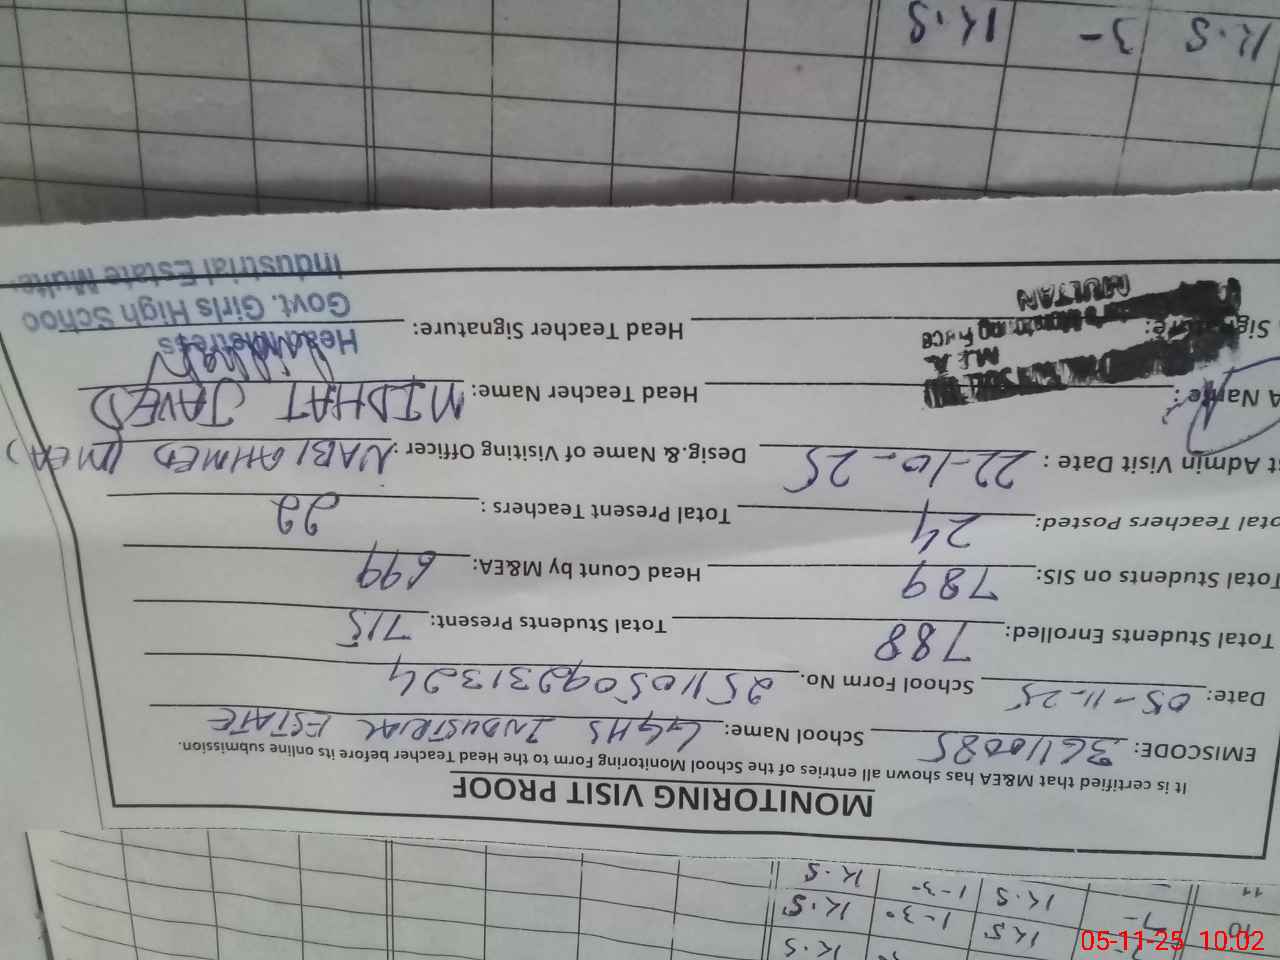 MONITORING VISIT PROOF
It is certified that M&EA has shown all entries of the School Monitoring Form to the Head Teacher before its online submission.
EMISCODE: 36110085 School Name: GGHS INDUSTRIAL ESTATE
Date: 05-11-25 School Form No. 25110509231324
Total Students Enrolled: 788 Total Students Present: 715
Total Students on SIS: 789 Head Count by M&EA: 699
otal Teachers Posted: 24 Total Present Teachers : 22
st Admin Visit Date : 22-10-25 Desig.& Name of Visiting Officer : NABI AHMED (MEA)
A Name : Head Teacher Name: MIDHAT JAVED
Signature: Head Teacher Signature:
M.E.A
MULTAN
Headmistress
Govt. Girls High Schoo
Industrial Estate Multa
K.S 3- K.S
11 K.S 1-3- K.S
10 7- K.S 1-3- K.S
K.S
05-11-25 10:02